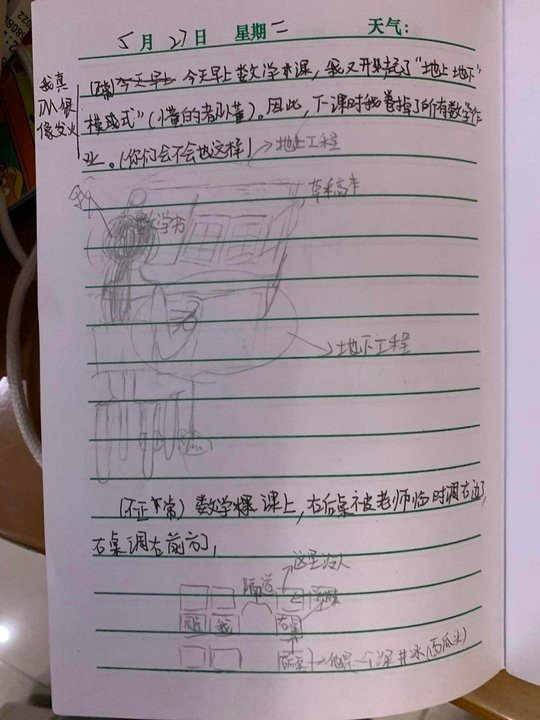 5月27日 星期二 天气:
我真TM很像发火
(正常)今天早上 今天早上数学课,我又开起了“地上地下”
模式”(懂的者懂)。因此,下课时我卷掉了所有数学作
业。(你们会不会也这样)
地上工程
我
数学书
草稿本
地下工程
(不正常)数学课上,右后桌被老师临时调右边了,
右桌调右前方了,
这里没人
隧道
同桌 我 右桌
右后桌